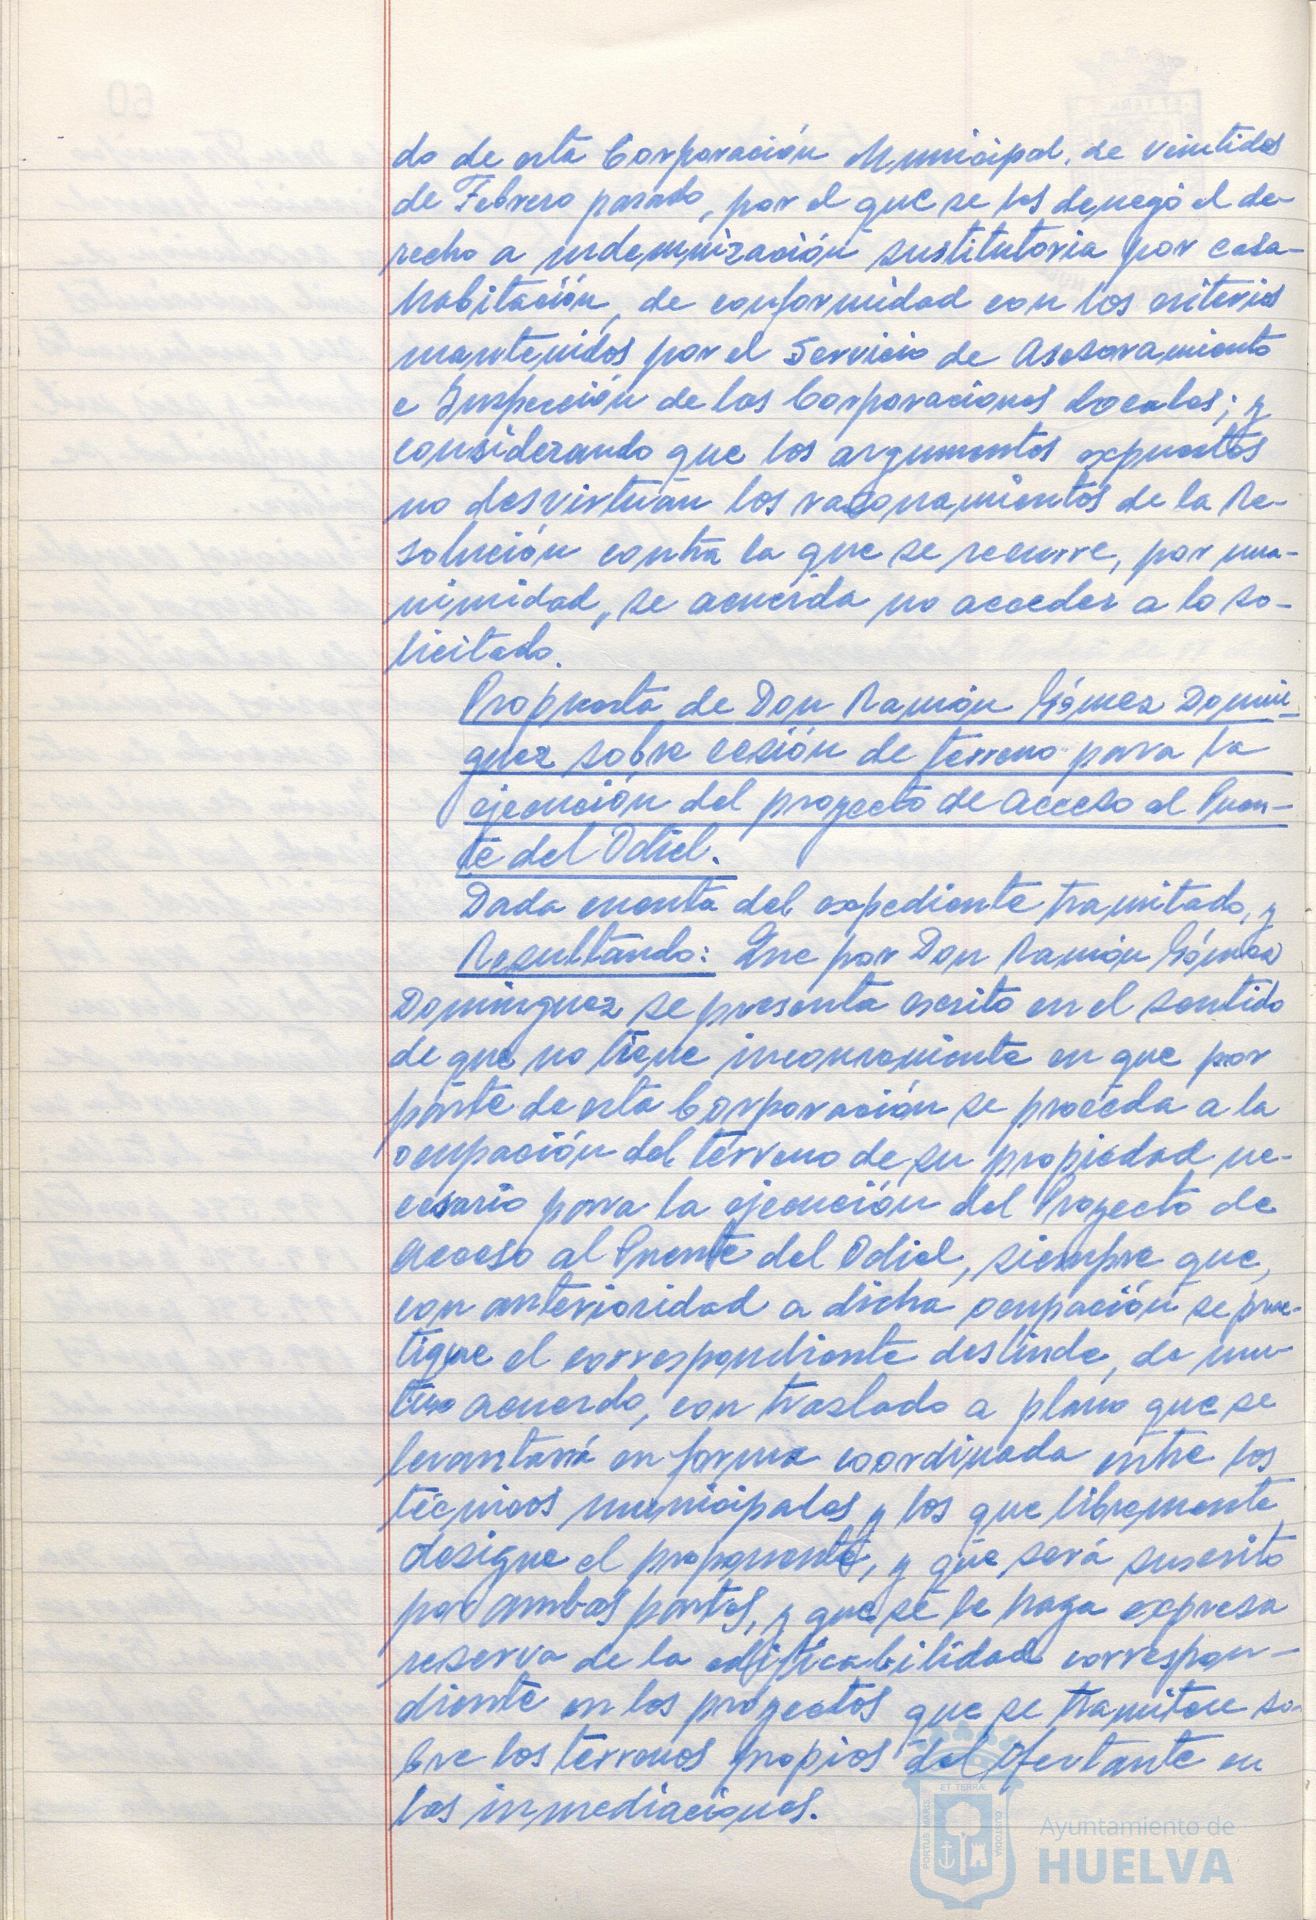 do de esta Corporación Municipal, de veintidos
de Febrero pasado, por el que se les denegó el de-
recho a indemnización sustitutoria por casa-
habitación, de conformidad con los criterios
mantenidos por el Servicio de Asesoramiento
e Inspección de las Corporaciones Locales; y
considerando que los argumentos expuestos
no desvirtuan los razonamientos de la Re-
solución contra la que se recurre, por una-
nimidad, se acuerda no acceder a lo so-
licitado.
Propuesta de Don Ramón Gómez Domin-
guez sobre cesión de terreno para la
ejecución del proyecto de acceso al Puen-
te del Odiel.
Dada cuenta del expediente tramitado, y
Resultando: Que por Don Ramón Gómez
Dominguez se presenta escrito en el sentido
de que no tiene inconveniente en que por
parte de esta Corporación se proceda a la
ocupación del terreno de su propiedad ne-
cesario para la ejecución del Proyecto de
acceso al Puente del Odiel, siempre que,
con anterioridad a dicha ocupación se prac-
tique el correspondiente deslinde, de mu-
tuo acuerdo, con traslado a plano que se
levantará en forma coordinada entre los
técnicos municipales y los que libremente
designe el proponente, y que será suscrito
por ambas partes, y que se le haga expresa
reserva de la edificabilidad correspon-
diente en los proyectos que se tramiten so-
bre los terrenos propios del ofertante en
las inmediaciones.
PORTUS MARIS ET TERRAE CUSTODIA
Ayuntamiento de
HUELVA